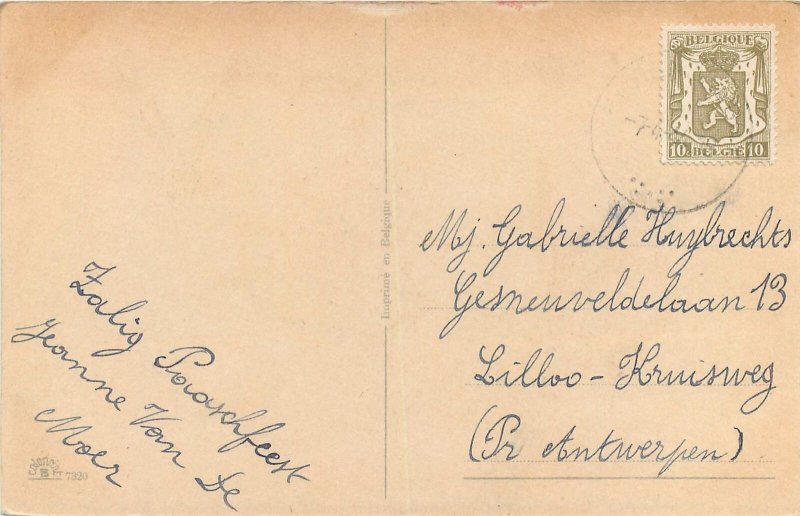 Zalig Paaschfeest
Jeanne Van De
Moer
7320
Imprimé en Belgique
BELGIQUE
10c BELGIE 10c
Mj. Gabrielle Huybrechts
Gesneuveldelaan 13
Lilloo - Kruisweg
(Pr Antwerpen)